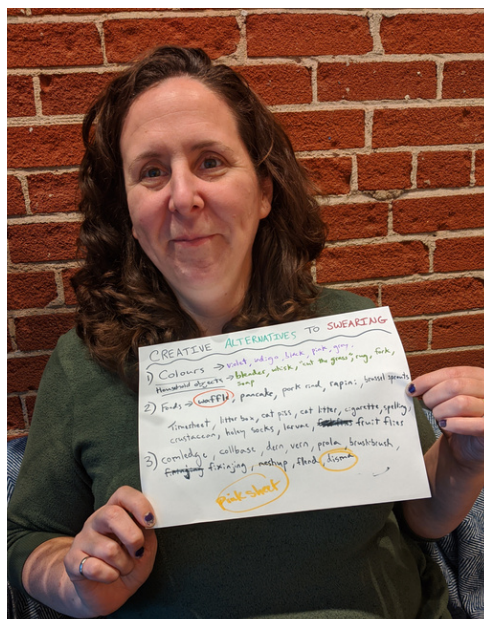 CREATIVE ALTERNATIVES TO SWEARING
1) Colours → violet, indigo, black, pink, gray,
Household objects → blender, whisk, cut the grass, rug, fork,
soap
2) Foods → waffle, pancake, pork rind, rapini, brussel sprouts
Timesheet, litter box, cat piss, cat litter, cigarette, spelling,
crustacean, holey socks, larvae, fruit flies
3) comledge, collbase, dern, vern, prolm, brustbrush,
fixinjing, meshup, flend, disma
pink street